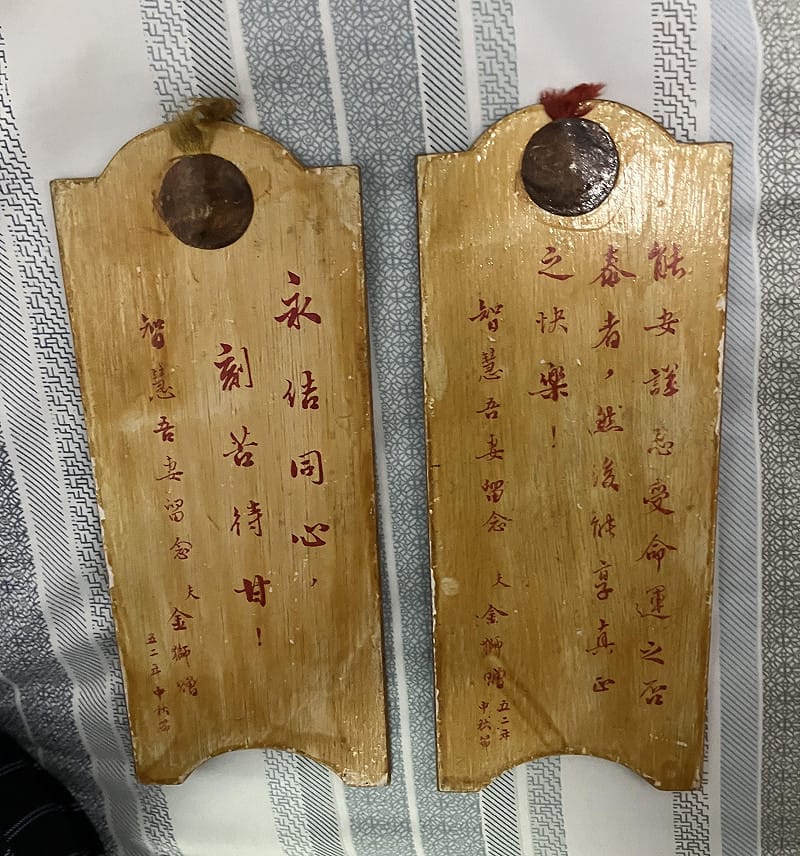 永結同心，
刻苦待甘！
智慧吾妻留念
夫 金獅贈
五二年中秋節
能安詳忍受命運之否
泰者，然後能享真正
之快樂！
智慧吾妻留念
夫 金獅贈
五二年
中秋節